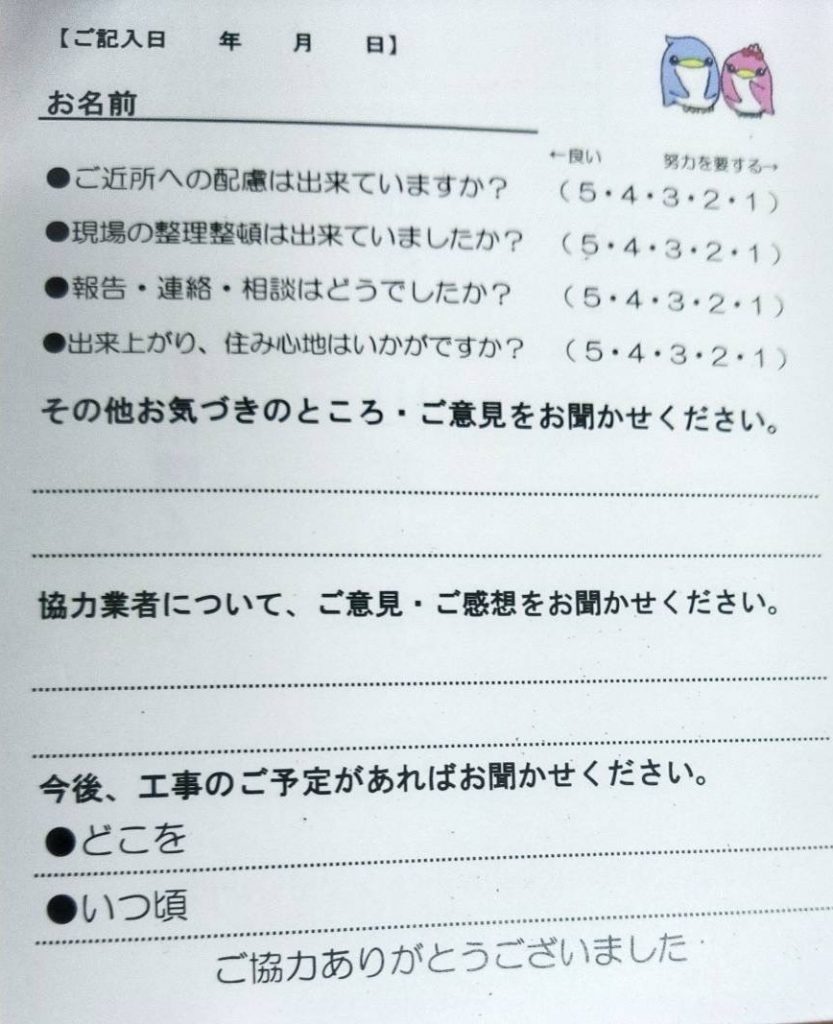 【ご記入日　　年　　月　　日】
お名前
←良い　　努力を要する→
●ご近所への配慮は出来ていますか？　（５・４・３・２・１）
●現場の整理整頓は出来ていましたか？　（５・４・３・２・１）
●報告・連絡・相談はどうでしたか？　（５・４・３・２・１）
●出来上がり、住み心地はいかがですか？　（５・４・３・２・１）
その他お気づきのところ・ご意見をお聞かせください。
協力業者について、ご意見・ご感想をお聞かせください。
今後、工事のご予定があればお聞かせください。
●どこを
●いつ頃
ご協力ありがとうございました